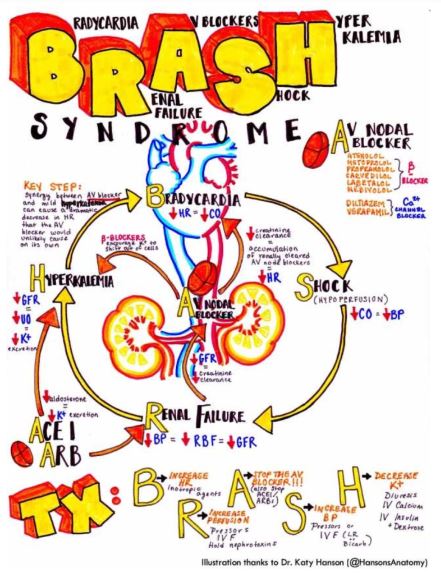 BRADYCARDIA
AV BLOCKERS
HYPER
KALEMIA
RENAL
FAILURE
SHOCK
SYNDROME
AV NODAL
BLOCKER
ATENOLOL
METOPROLOL
PROPRANOLOL
CARVEDILOL
LABETALOL
NEBIVOLOL
β
BLOCKER
DILTIAZEM
VERAPAMIL
Ca2+
CHANNEL
BLOCKER
KEY STEP:
Synergy between AV blocker
and mild hyperkalemia
can cause a dramatic
decrease in HR
that the AV
blocker would
unlikely cause
on its own
BRADYCARDIA
↓HR = ↓CO
β-BLOCKERS
encourage K+ to
shift out of cells
↓creatinine
clearance
=
accumulation
of renally cleared
AV node blockers
=
↓HR
HYPERKALEMIA
↓GFR
=
↓UO
=
↓K+
excretion
AV NODAL
BLOCKER
SHOCK
(HYPOPERFUSION)
↓CO = ↓BP
↓GFR
=
↓creatinine
clearance
↓aldosterone
=
↓K+ excretion
ACEI
ARB
RENAL FAILURE
↓BP = ↓RBF = ↓GFR
TX:
B → INCREASE
HR
Inotropic
agents
R → INCREASE
PERFUSION
Pressors
IVF
Hold nephrotoxins
A → STOP THE AV
BLOCKER!!!
(also stop
ACEI/
ARBs)
S → INCREASE
BP
Pressors or
IVF (LR
or
Bicarb)
H → DECREASE
K+
Diuresis
IV Calcium
IV Insulin
+ Dextrose
Illustration thanks to Dr. Katy Hanson (@HansonsAnatomy)